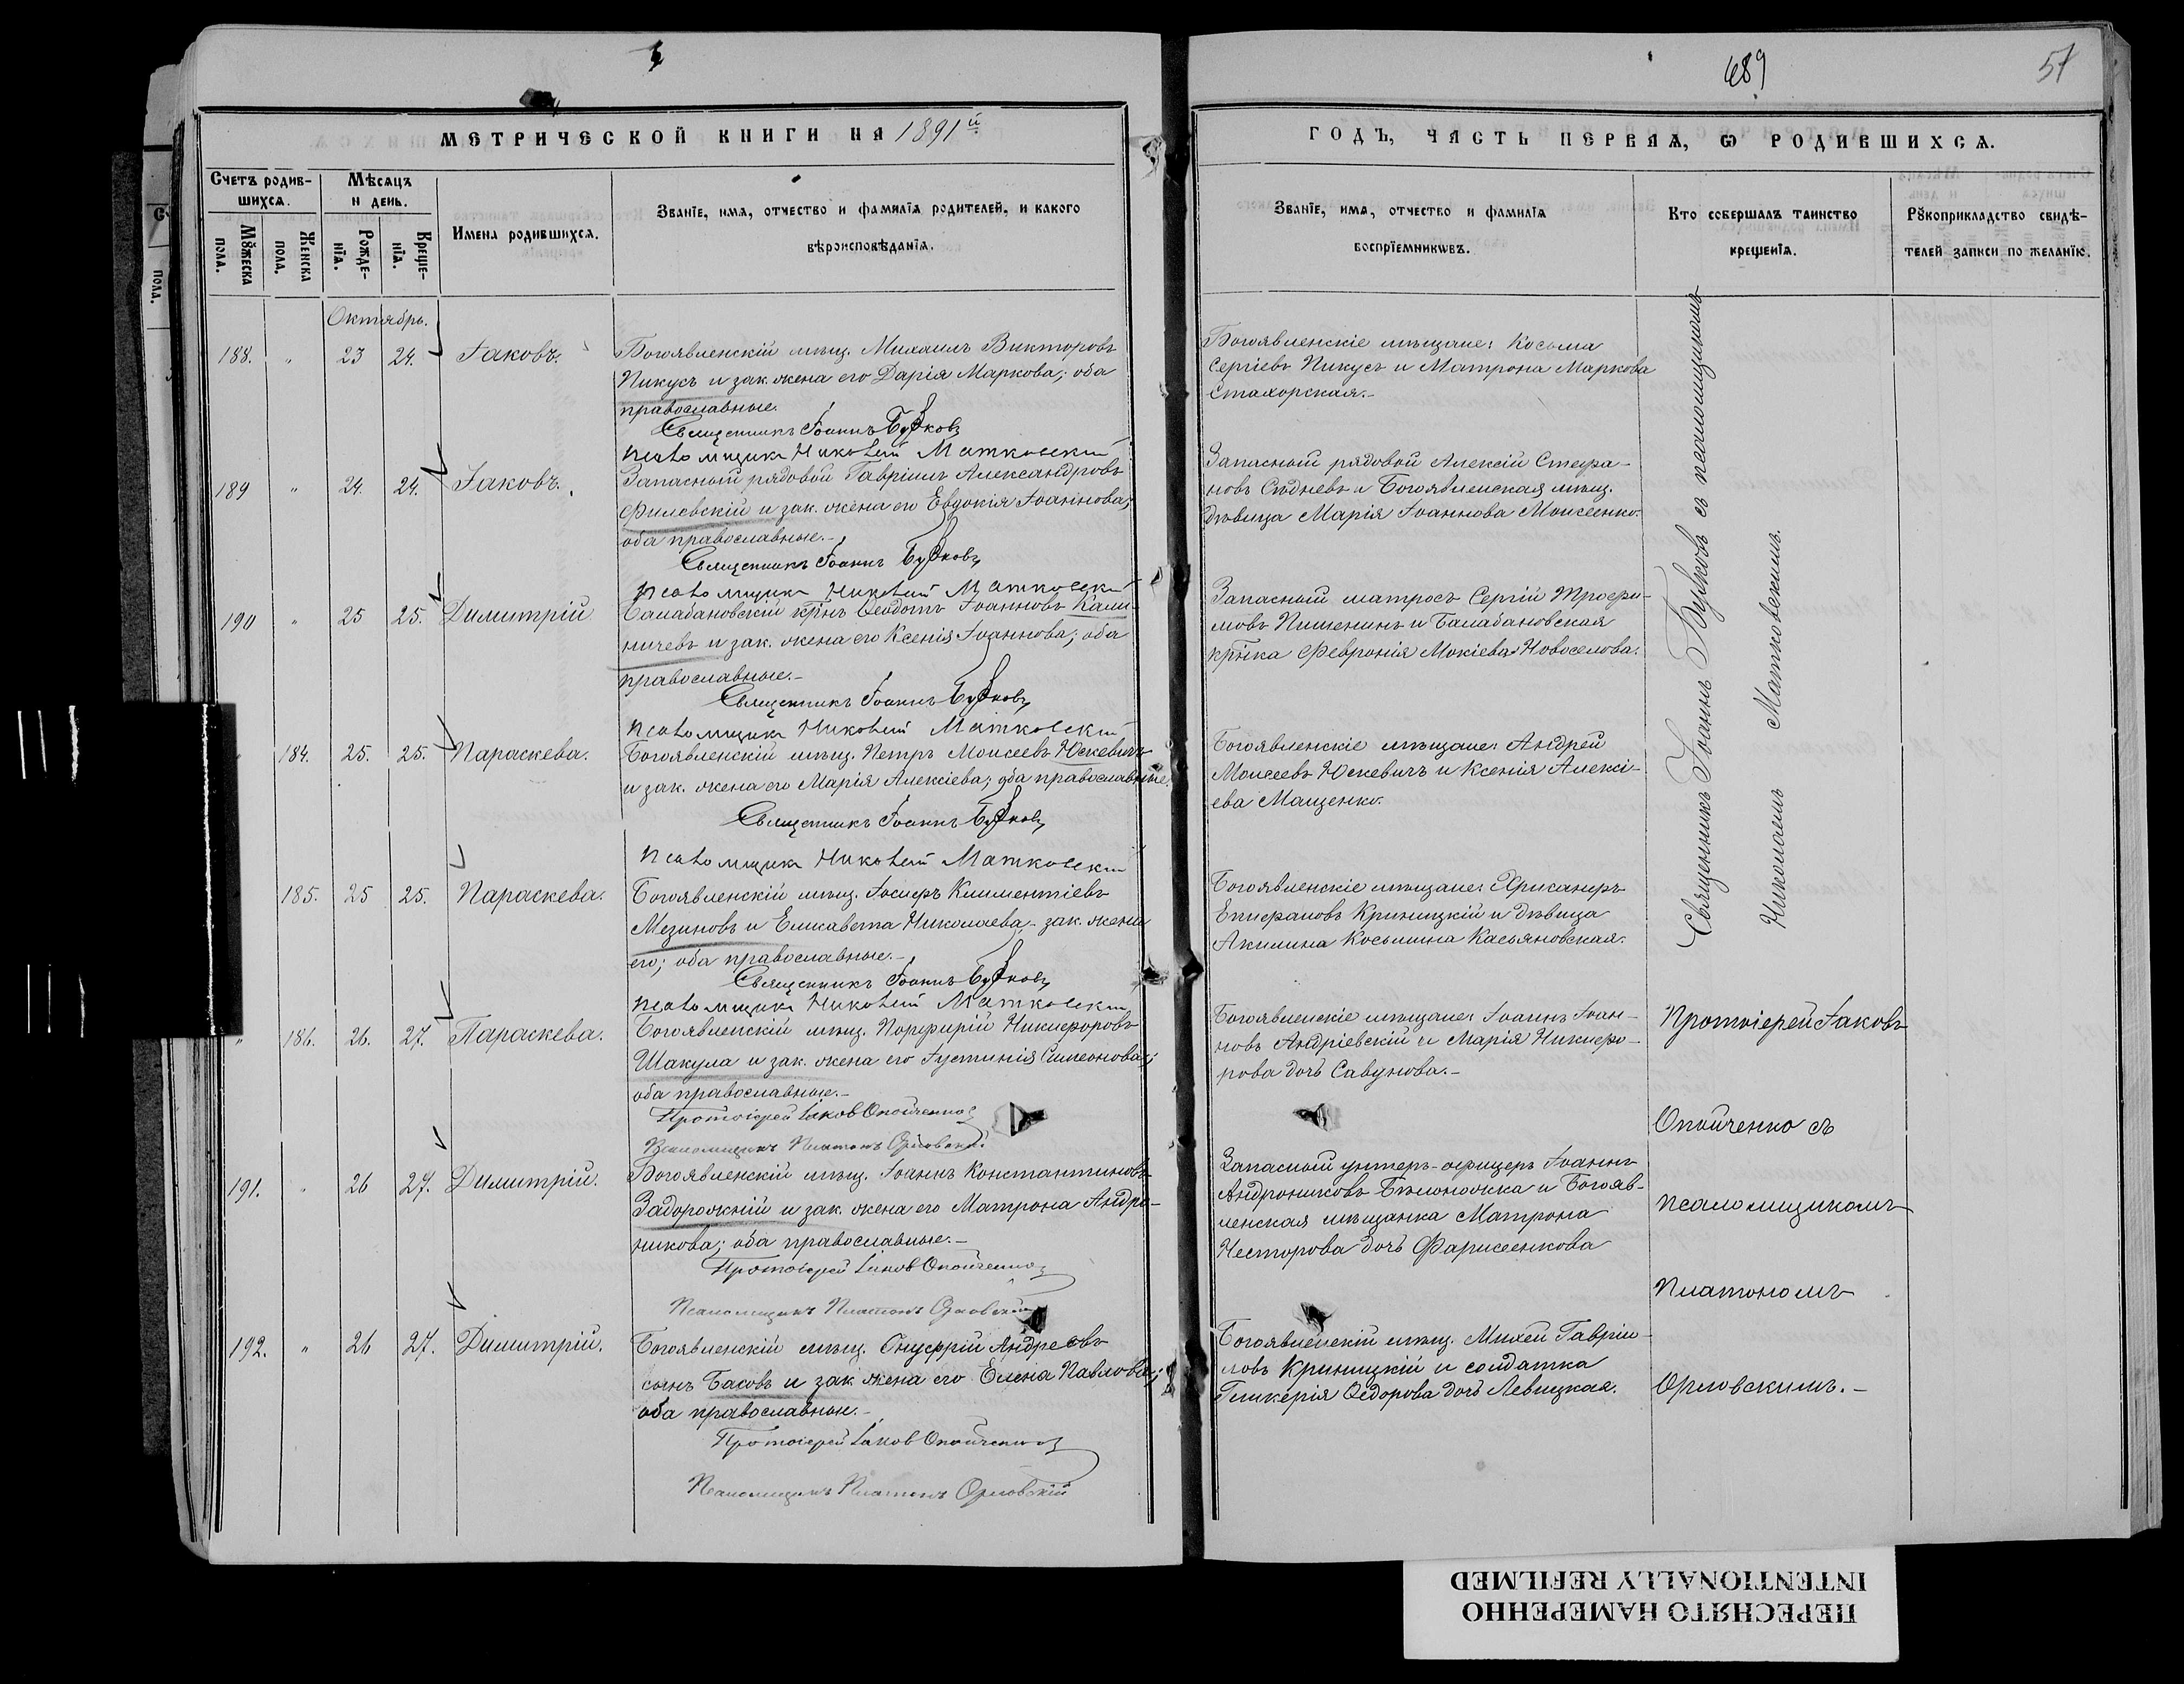 689
51
МЕТРИЧЕСКОЙ КНИГИ НА 1891й
ГОДЪ, ЧАСТЬ ПЕРВАЯ, Ѡ РОДИВШИХСѦ.
Счетъ родив-
шихсѧ.
Мѣсѧцъ
и день.
Имена родившихсѧ.
Званїе, имѧ, отчество и фамилїѧ родителей, и какого
вѣроисповѣданїѧ.
Званїе, имѧ, отчество и фамилїѧ
воспрїемникѡвъ.
Кто совершалъ таинство
крещенїѧ.
Рꙋкоприкладство свидѣ-
телей записи по желанїю.
Мꙋжеска
пола.
Женска
пола.
Рожде-
нїѧ.
Креще-
нїѧ.
Октябрь.
188. " 23 24. Іаковъ.
Богоявленскій мѣщ. Михаилъ Викторовъ
Пикусъ и зак. жена его Дарія Маркова; оба
православные.
Священникъ Іоаннъ Бузковъ
псаломщикъ Николай Матковскій
Богоявленскіе мѣщане: Косьма
Сергіевъ Пикусъ и Матрона Маркова
Стахорская.-
189 " 24. 24. Іаковъ.
Запасный рядовой Гавріилъ Александровъ
Филевскій и зак. жена его Евдокія Іоаннова;
оба православные.-
Священникъ Іоаннъ Бузковъ
псаломщикъ Николай Матковскій
Запасный рядовой Алексій Стефа-
новъ Сѣдневъ и Богоявленская мѣщ.
дѣвица Марія Іоаннова Моисеенко.
190 " 25 25. Димитрій
Балабановскій крнъ Ѳеодотъ Іоанновъ Кали-
ничевъ и зак. жена его Ксенія Іоаннова; оба
православные.-
Священникъ Іоаннъ Бузковъ
псаломщикъ Николай Матковскій
Запасный матросъ Сергій Трофи-
мовъ Пшенинъ и Балабановская
крнка Февронія Мокіева Новоселова.
184. 25. 25. Параскева.
Богоявленскій мѣщ. Петръ Моисеевъ Юскевичъ
и зак. жена его Марія Алексіева; оба православные.
Священникъ Іоаннъ Бузковъ
псаломщикъ Николай Матковскій
Богоявленскіе мѣщане: Андрей
Моисеевъ Юскевичъ и Ксенія Алексі-
ева Мащенко.
185. 25 25. Параскева.
Богоявленскій мѣщ. Іосифъ Климентіевъ
Мезиновъ и Елисавета Николаева - зак. жена
его; оба православные.-
Священникъ Іоаннъ Бузковъ
псаломщикъ Николай Матковскій
Богоявленскіе мѣщане: Хрисанфъ
Епифановъ Криницкій и дѣвица
Акилина Косьмина Касьяновская.
Священникъ Іоаннъ Бузковъ съ псаломщикомъ
Николаемъ Матковскимъ.
" 186. 26. 27. Параскева.
Богоявленскій мѣщ. Порфирій Никифоровъ
Шакула и зак. жена его Іустинія Симеонова;
оба православные.-
Протоіерей Іаковъ Опойченко
Псаломщикъ Платонъ Орловскій
Богоявленскіе мѣщане: Іоаннъ Іоан-
новъ Андріевскій и Марія Никифо-
рова дочь Савунова.-
Протоіерей Іаковъ
Опойченко съ
псаломщикомъ
Платономъ
Орловскимъ.-
191. " 26 27. Димитрій.
Богоявленскій мѣщ. Іоаннъ Константиновъ
Задорожній и зак. жена его Матрона Андро-
никова; оба православные.-
Протоіерей Іаковъ Опойченко
Псаломщикъ Платонъ Орловскій
Запасный унтеръ-офицеръ Іоаннъ
Андрониковъ Бѣлоножка и Богояв-
ленская мѣщанка Матрона
Несторова дочь Фарисеенкова
192. " 26 27. Димитрій.
Богоявленскій мѣщ. Онуфрій Андреевъ
сынъ Басовъ и зак. жена его Елена Павлова;
оба православные.-
Протоіерей Іаковъ Опойченко
Псаломщикъ Платонъ Орловскій
Богоявленскій мѣщ. Михей Гавріи-
ловъ Криницкій и солдатка
Гликерія Ѳедорова дочь Левицкая.
ПЕРЕСНЯТО НАМЕРЕННО
INTENTIONALLY REFILMED